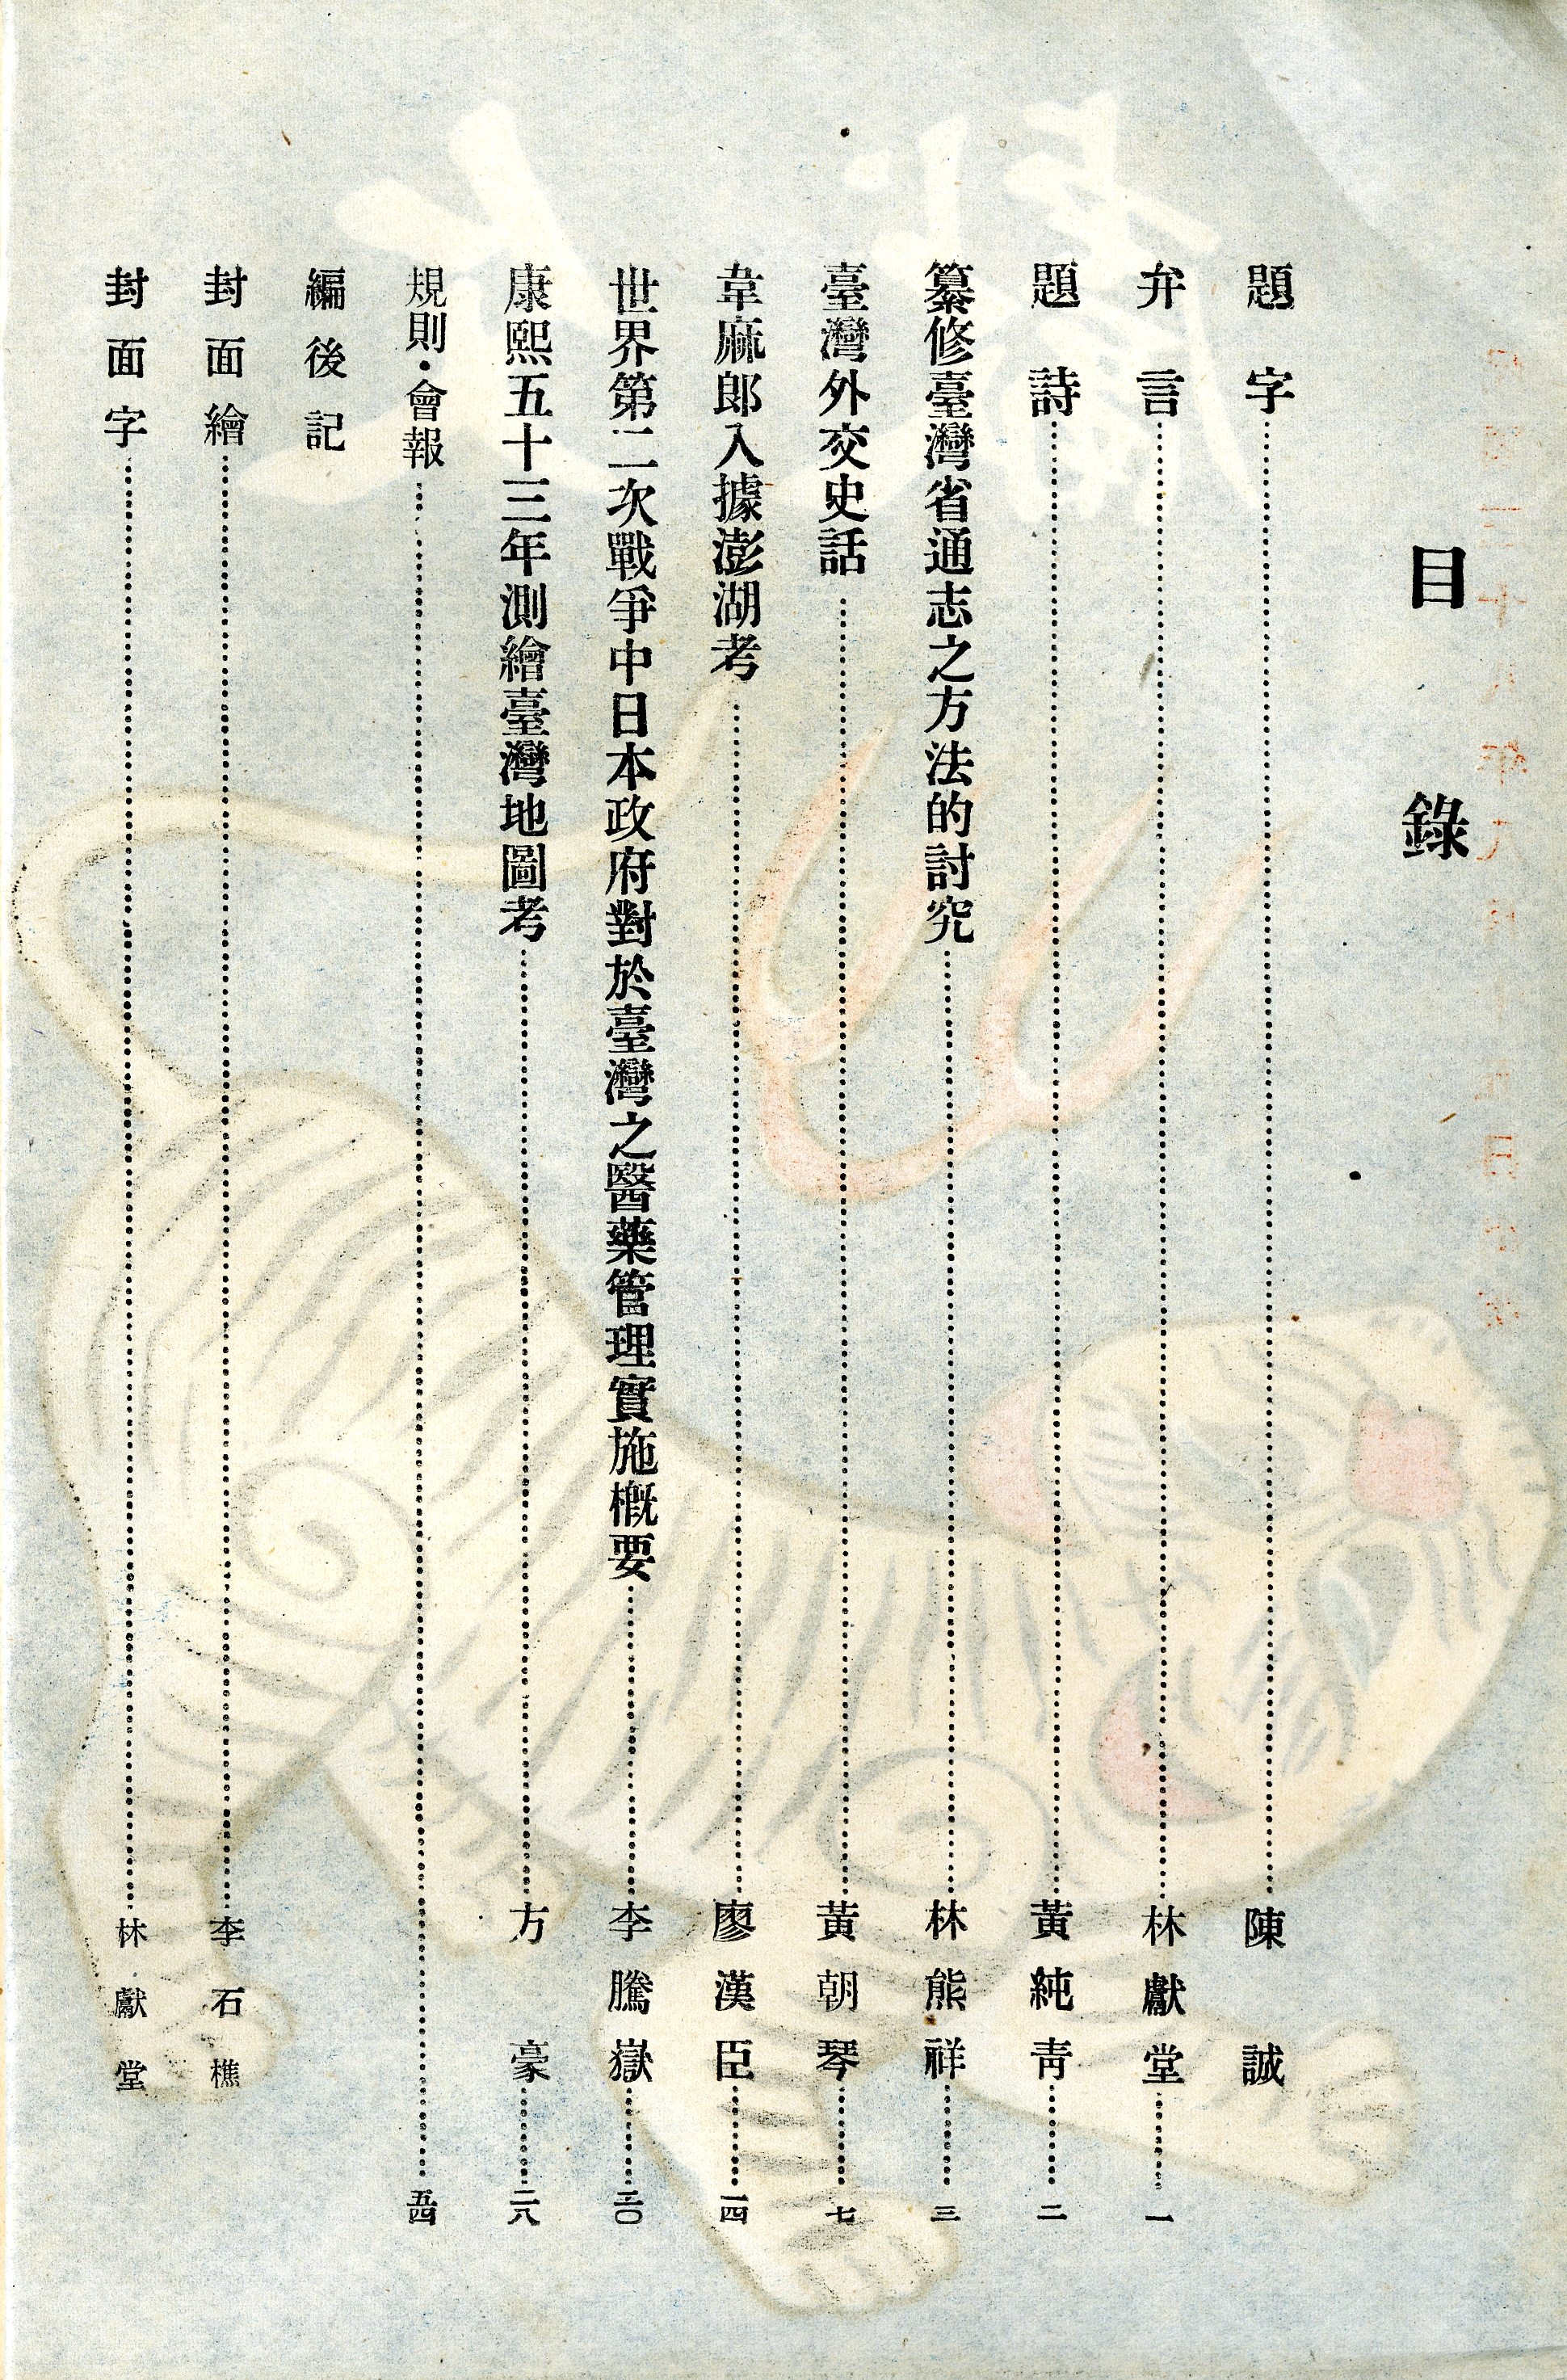 目錄
題字………陳誠
弁言………林獻堂………一
題詩………黃純青………二
纂修臺灣省通志之方法的討究………林熊祥………三
臺灣外交史話………黃朝琴………七
韋麻郎入據澎湖考………廖漢臣………一四
世界第二次戰爭中日本政府對於臺灣之醫藥管理實施概要………李騰嶽………二〇
康熙五十三年測繪臺灣地圖考………方豪………二八
規則・會報………五四
編後記
封面繪………李石樵
封面字………林獻堂